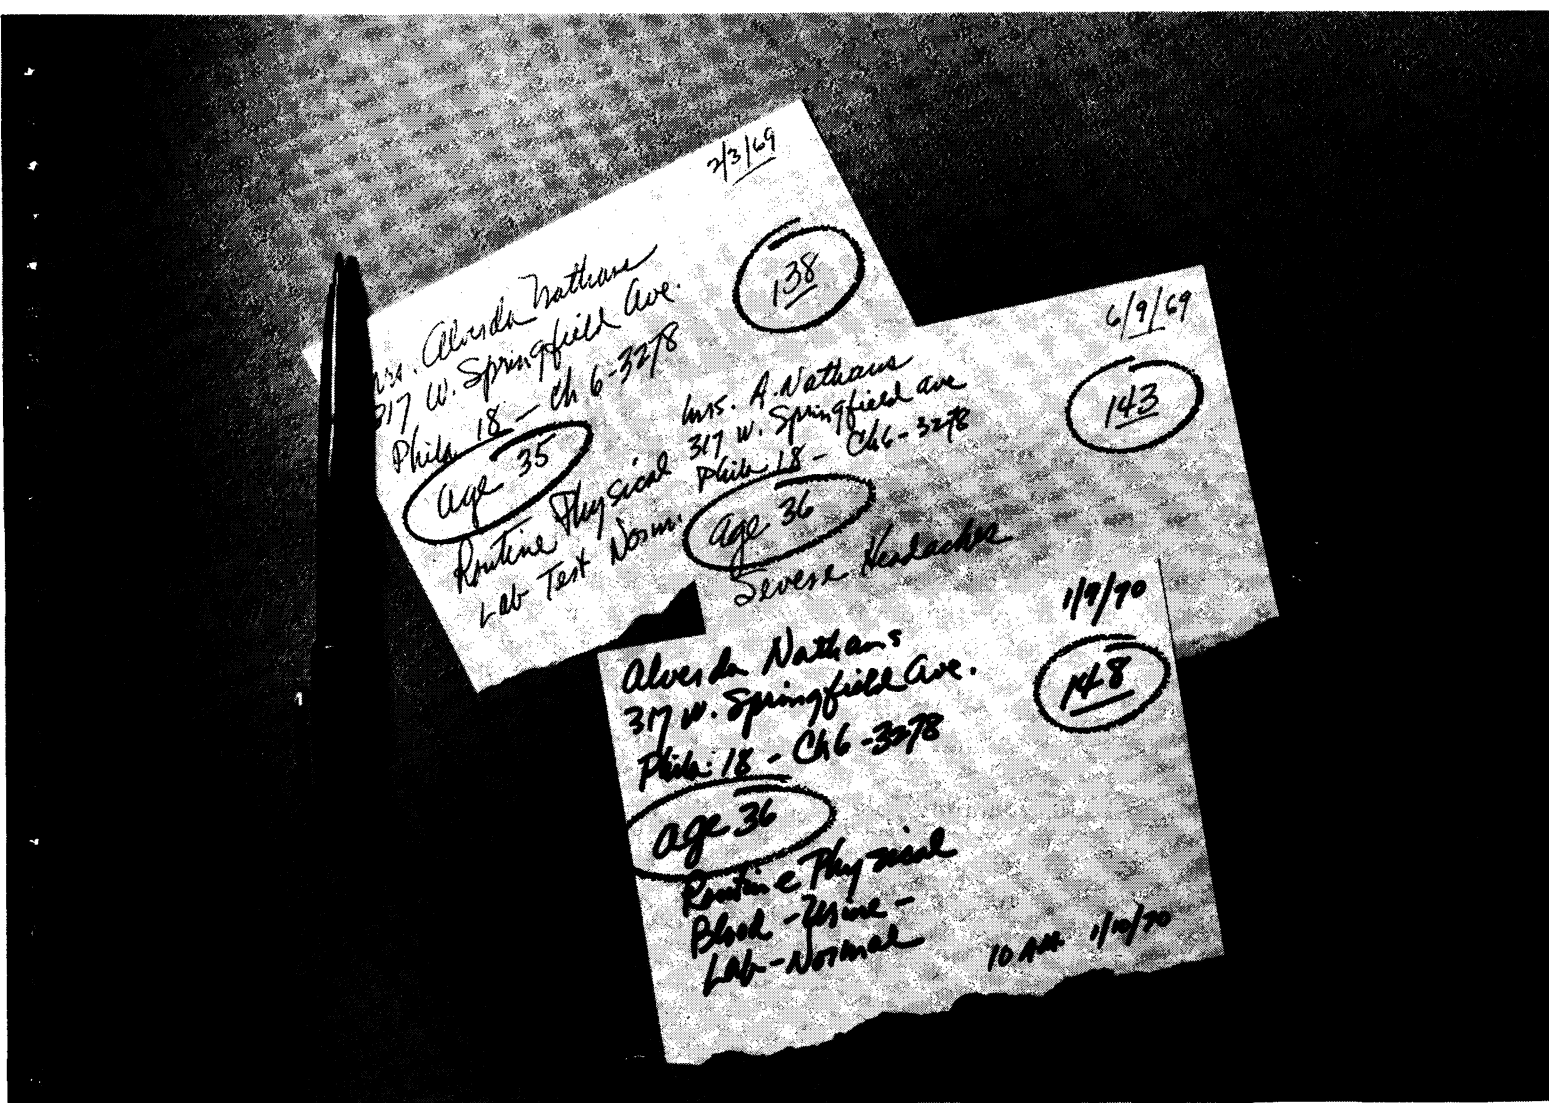 2/3/69
138
Mrs. Alverda Nathans
317 W. Springfield Ave.
Phila 18 - Ch 6-3278
age 35
Routine Physical
Lab Test Norm.
6/9/69
143
Mrs. A. Nathans
317 W. Springfield Ave
Phila 18 - Ch 6-3278
age 36
Severe Headaches
1/9/70
148
Alverda Nathans
317 W. Springfield Ave.
Phila. 18 - Ch 6-3278
age 36
Routine Physical
Blood - Urine -
Lab - Normal
10 AM 1/10/70